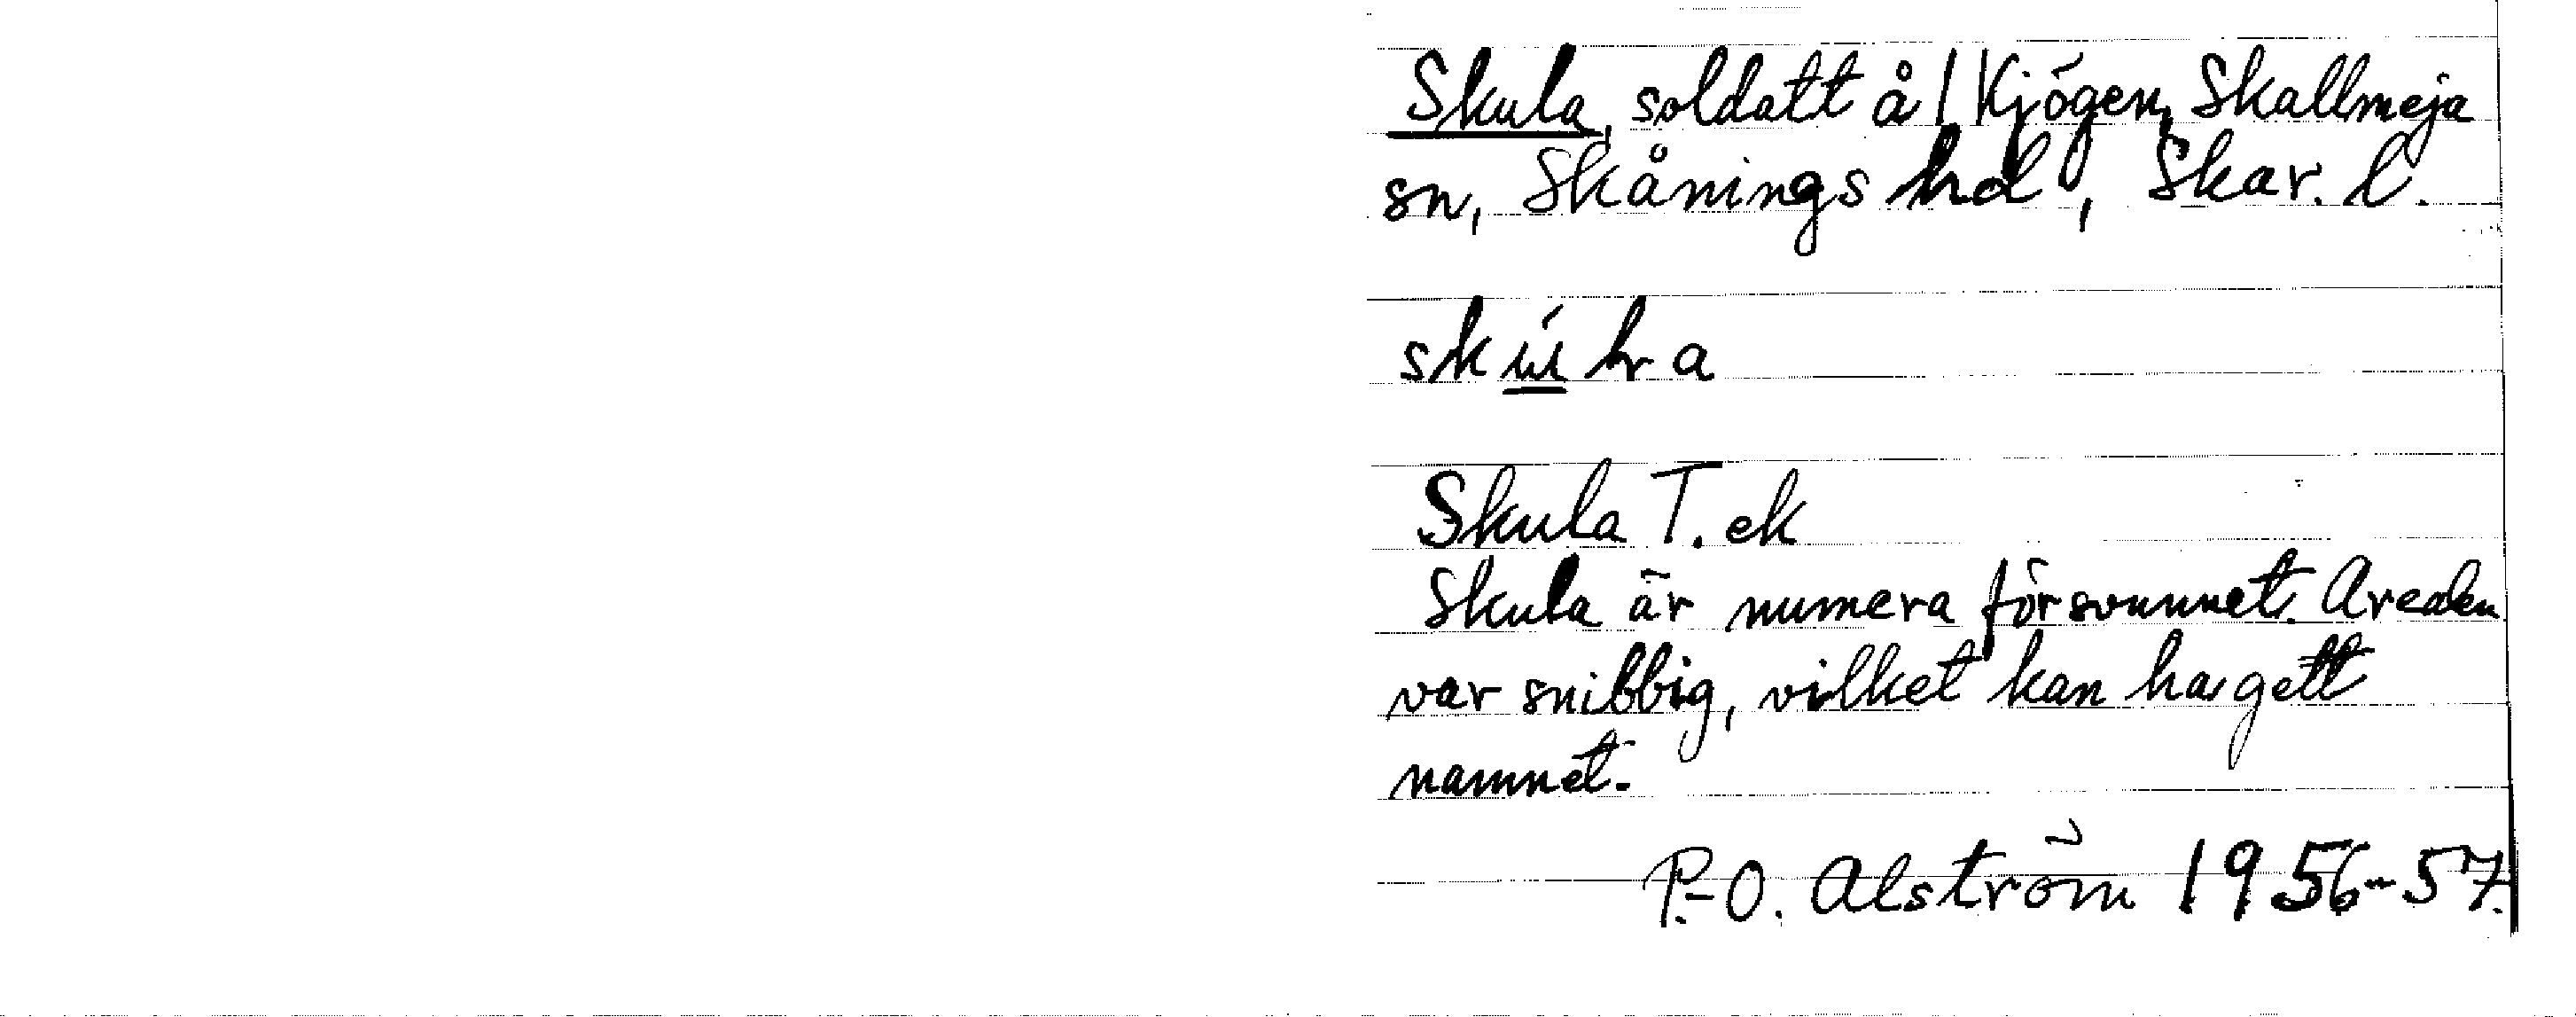 Skula, soldatt å 1 Kjögen, Skallmeja
sn, Skånings hd, Skar. l.
skúra
Skula T. ek
Skula är numera försvunnet. Arealen
var snibbig, vilket kan ha gett
namnet.
P.-O. Alström 1956-57.